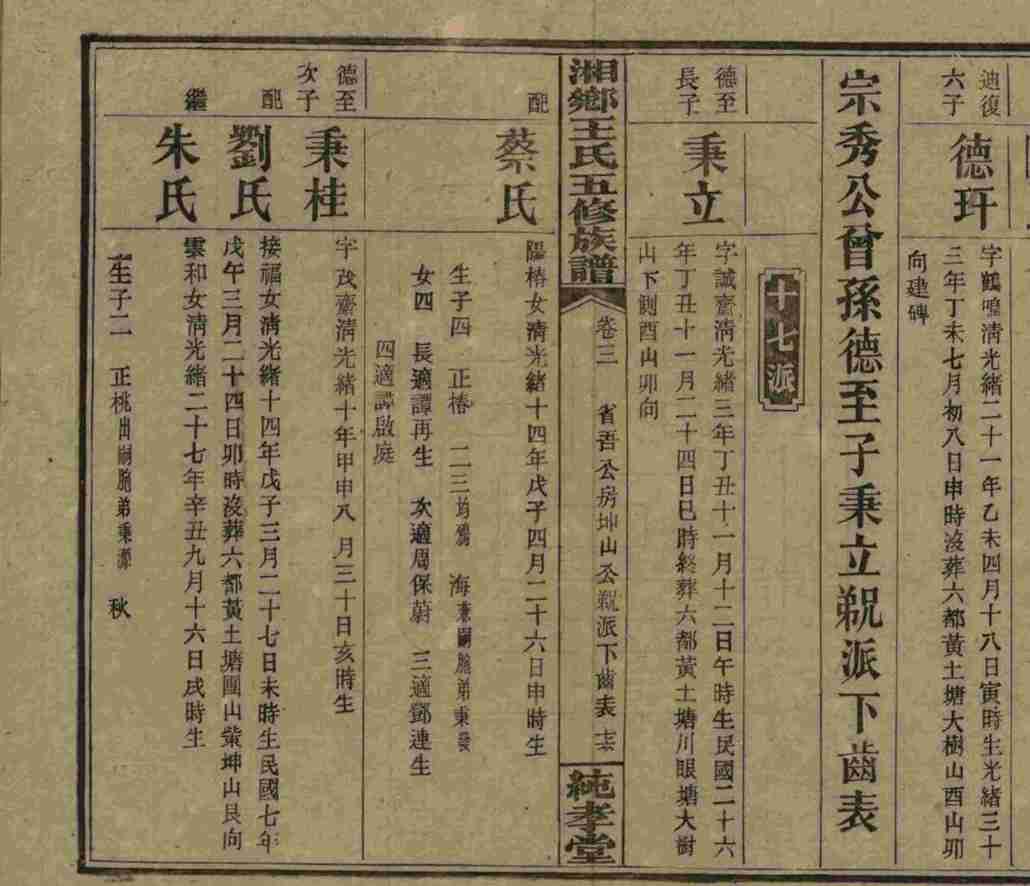 迪復
六子
德玕
字鶴鳴清光緒二十一年乙未四月十八日寅時生光緒三十
三年丁未七月初八日申時沒葬六都黃土塘大樹山酉山卯
向建碑
宗秀公曾孫德至子秉立派下齒表
十七派
德至
長子
秉立
字誠齋清光緒三年丁丑十一月十二日午時生民國二十六
年丁丑十一月二十四日巳時終葬六都黃土塘川眼塘大樹
山下側酉山卯向
湘鄉王氏五修族譜
卷三
省吾公房坤山公派下齒表
純孝堂
配
蔡氏
陽椿女清光緒十四年戊子四月二十六日申時生
生子四 正椿 二三均殤 海兼嗣胞弟秉發
女四 長適譚再生 次適周保蔚 三適鄧連生
四適譚啟庭
德至
次子
秉桂
字茂齋清光緒十年甲申八月三十日亥時生
配
劉氏
接福女清光緒十四年戊子三月二十七日未時生民國七年
戊午三月二十四日卯時沒葬六都黃土塘團山紫坤山艮向
繼
朱氏
雲和女清光緒二十七年辛丑九月十六日戌時生
生子二 正桃出嗣胞弟秉源 秋